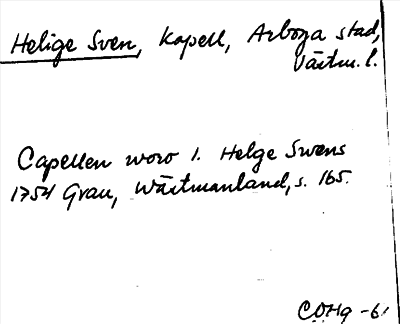 Helige Sven, Kapell, Arboga stad,
Västm. l.
Capellen woro 1. Helge Swens
1754 Grau, Wästmanland, s. 165.
COHg -61